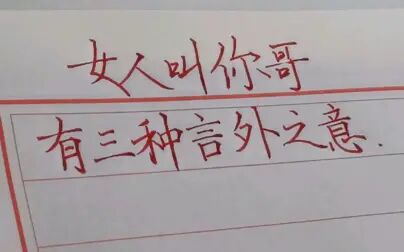 女人叫你哥
有三种言外之意.